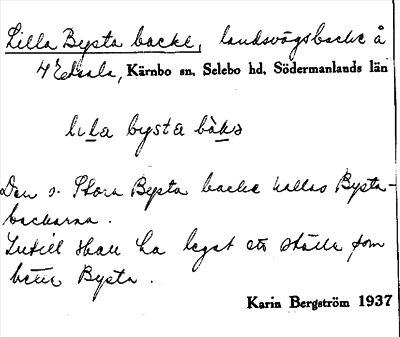 Lilla Bysta backe, landsvägsbacke å
Kärnbo sn, Selebo hd, Södermanlands län
lila bysta bàkə
Den o. Stora Bysta backe kallas Bysta-
backarna.
Intill skall ha legat ett ställe som
hette Bysta.
Karin Bergström 1937